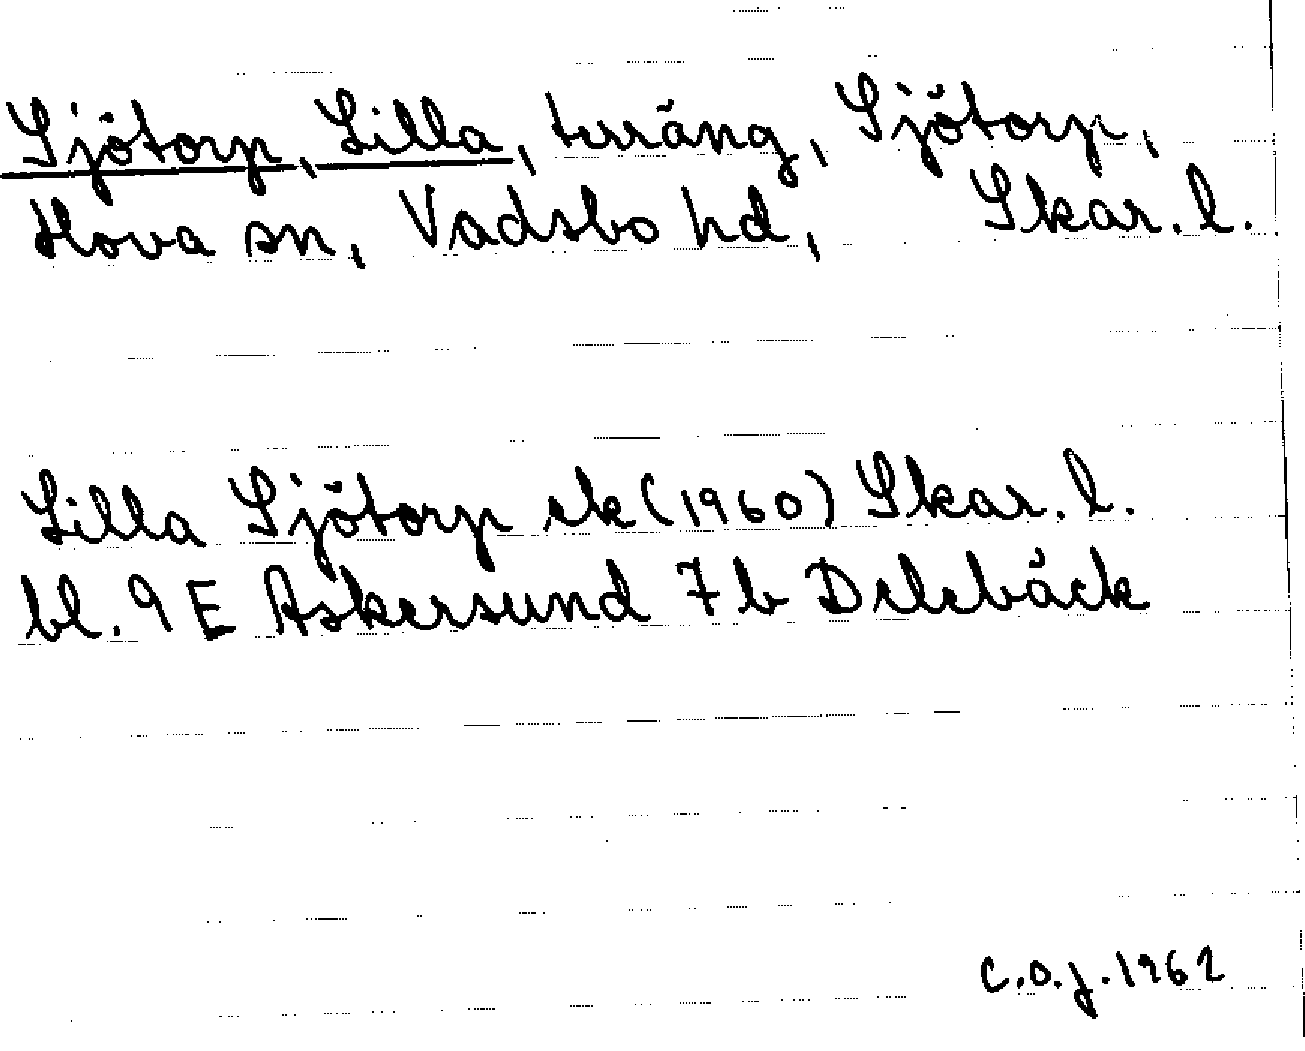 Sjötorp, Lilla, terräng, Sjötorp,
Hova sn, Vadsbo hd, Skar. l.
Lilla Sjötorp ek (1960) Skar. l.
bl. 9 E Askersund 7b Delebäck
C.O.J. 1962